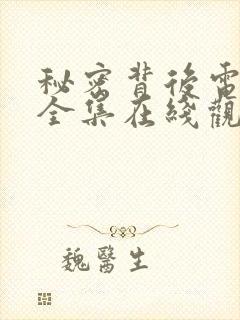 秘密背後電
全集在綫觀
魏醫生